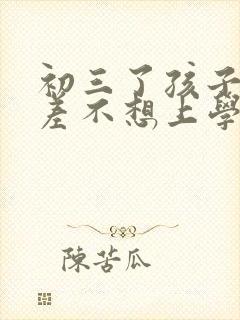 初三了孩子
差不想上學
陳苦瓜